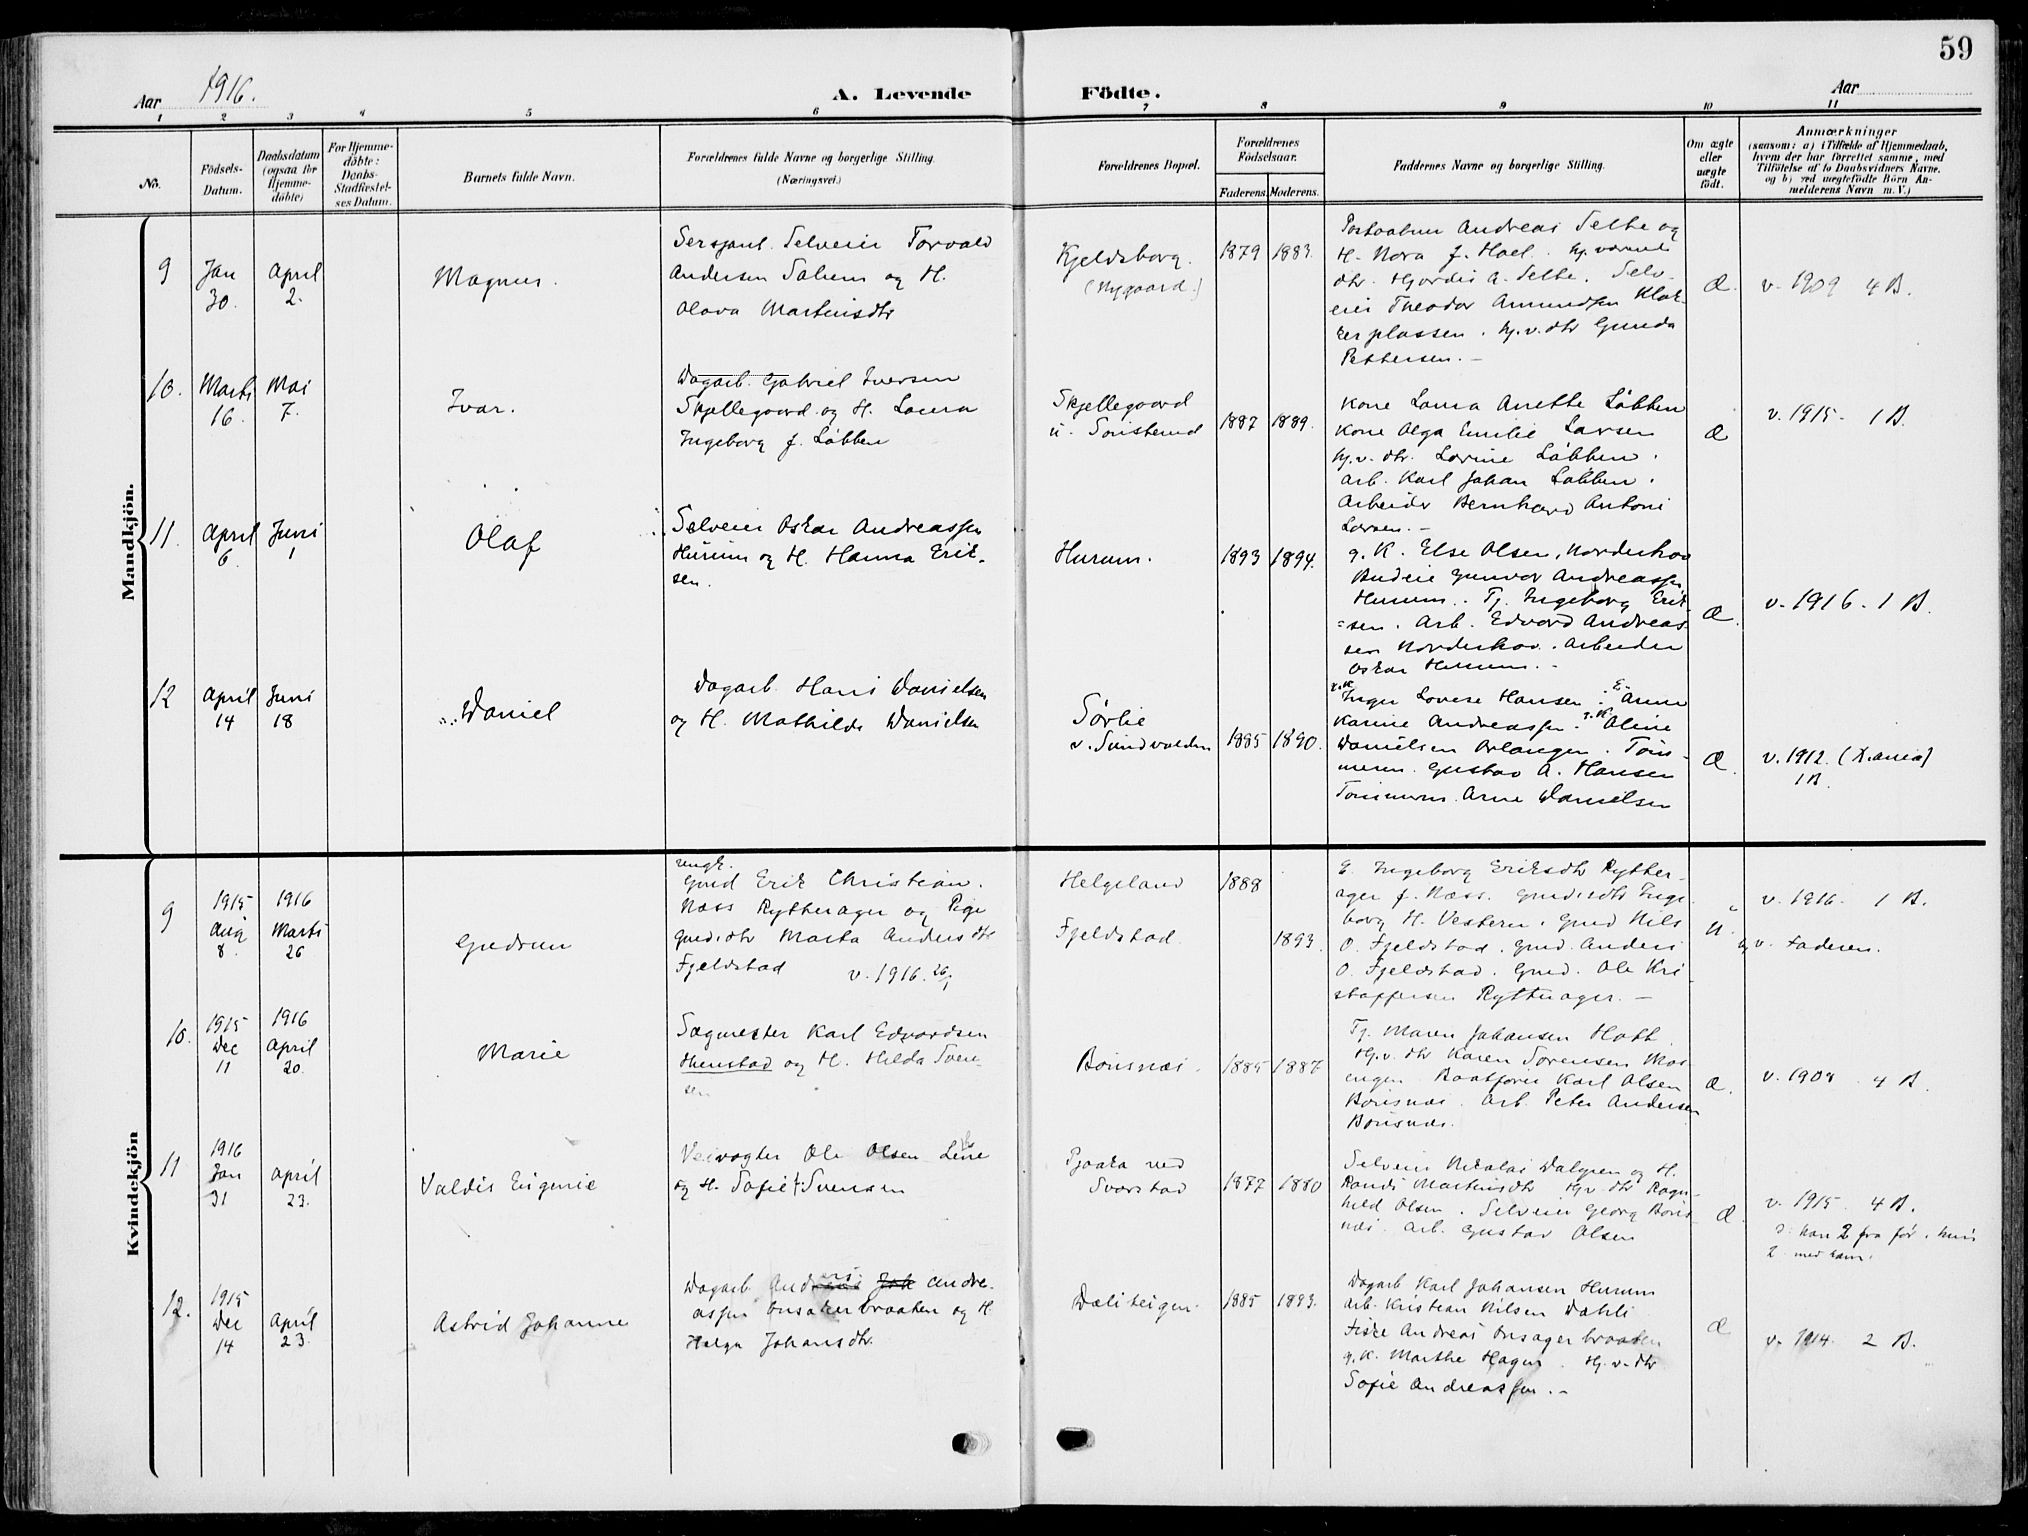 59
Aar 1916.
A. Levende Födte.
Aar
1 2 3 4 5 6 7 8 9 10 11
No.
Födsels-
Datum.
Daabsdatum
(ogsaa for
Hjemme-
döbte)
For Hjemme-
döbte:
Daabs-
Stadfæstel-
ses Datum.
Barnets fulde Navn.
Forældrenes fulde Navne og borgerlige Stilling.
(Næringsvei.)
Forældrenes Bopæl.
Forældrenes
Födselsaar.
Faderens. Moderens.
Faddernes Navne og borgerlige Stilling.
Om ægte
eller
uægte
födt.
Anmærkninger
(saasom: a) i Tilfælde af Hjemmedaab,
hvem der har forrettet samme, med
Tilföielse af to Daabsvidners Navne.
og b) ved uægtefödte Börn An-
melderens Navn m. V.)
Mandkjön.
9
Jan
30.
April
2.
Magnus.
Sersjant. Selveier Torvald
Andersen Solum og H.
Olava Martinsdtr
Kjeldsborg.
(Nygaard.)
1879 1883.
Andreas Sette og
H. Nora f. Hoel. hj. værende
dtr. Hjordis A. Sette. Selv-
eier Theodor Amundsen Klok-
kerplassen. hj.v. dtr Gunda
Pettersen. –
Æ.
v. 1909 4 B.
10.
Marts
16.
Mai
7.
Ivar.
Dagarb. Gabriel Iversen
Skjellegaard og H. Laura
Ingeborg f. Løbben
Skjellegaard
u.
1887 1889.
Kone Laura Anette Løbben
Kone Olga Emilie Larsen
hj.v. dtr. Lovine Løbben.
Arb. Karl Johan Løbben.
Arbeider Bernhard Antoni
Larsen. –
Æ
v. 1915. 1 B.
11.
April
6.
Juni
1
Olaf
Selveier Oskar Andreassen
Hurum og H. Hanna Erik-
sen.
Hurum.
1893 1894.
g. K. Else Olsen, Norderhov
Budeie Gunvor Andreassen
Hurum. Tj. Ingeborg Erik-
sen. Arb. Edvard Andreas-
sen Norderhov. Arbeider
Oskar Hurum. –
Æ.
v. 1916. 1 B.
12
April
14
Juni
18
Daniel
Dagarb. Hans Danielsen
og H. Mathilde Danielsen
Sørlie
v. Sundvolden
1885 1890.
g.K. Inger Lovise Hansen. E. Anne
Karine Andreassen. g.K. Oline
Danielsen. Tøm-
merm. Gustav A. Hansen
Tømmerm. Arne Danielsen
Æ.
v. 1912. (X.ania)
1 B.
Kvindekjön
9
1915
Aug
8.
1916
Marts
26
Gudrun
ungk.
Gmd Erik Christian.
Næss Rytterager og Pige
gmd.dtr Marta Andersdtr
Fjeldstad v. 1916. 26/1
Helgeland
Fjeldstad
1888
1893.
E. Ingeborg Eriksdtr Rytter-
ager f. Næss. Gmdsdtr Inge-
borg H. Vestern. Gmd Nils
O. Fjeldstad. Gmd. Anders
O. Fjeldstad. Gmd. Ole Kri-
stoffersen Rytterager. –
U.
v. 1916. 1 B.
v. Faderen.
10.
1915
Dec
11
1916
April
20.
Marie
Sagmester Karl Edvardsen
Henstad og H. Hilda Sven-
sen
Bønsnæs.
1885 1887
Tj. Maren Johansen Hatt.
Hj.v. dtr Karen Sørensen Mos-
engen. Baatfører Karl Olsen
Bønsnæs. Arb. Peter Andersen
Bønsnæs.
Æ.
v. 1908. 4 B.
11
1916
Jan
31
April
23.
Valdis Eugenie
Veivogter Ole Olsen Line
og H. Sofie f. Svensen
Pjaaka ved
Svarstad
1877 1880
Selveier Nikolai Dalgren og H.
Randi Martinsdtr Hj.v. dtr Ragn-
hild Olsen. Selveier Georg Bøns-
næs. Arb. Gustav Olsen
Æ.
v. 1915. 4 B.
: han 2 fra før. hun
2 med ham.
12.
1915
Dec
14
April
23.
Astrid Johanne
Dagarb. Anders Joh Andre-
assen Onsakerbraaten og H
Helga Johansdtr.
Dæliteigen.
1885 1893.
Dagarb Karl Johansen Hurum
Arb. Kristian Nilsen Dæhli
Fisker Andreas Onsagerbraaten
g.K. Marthe Hagen. Hj.v. dtr
Sofie Andreassen. –
Æ
v. 1914. 2 B.